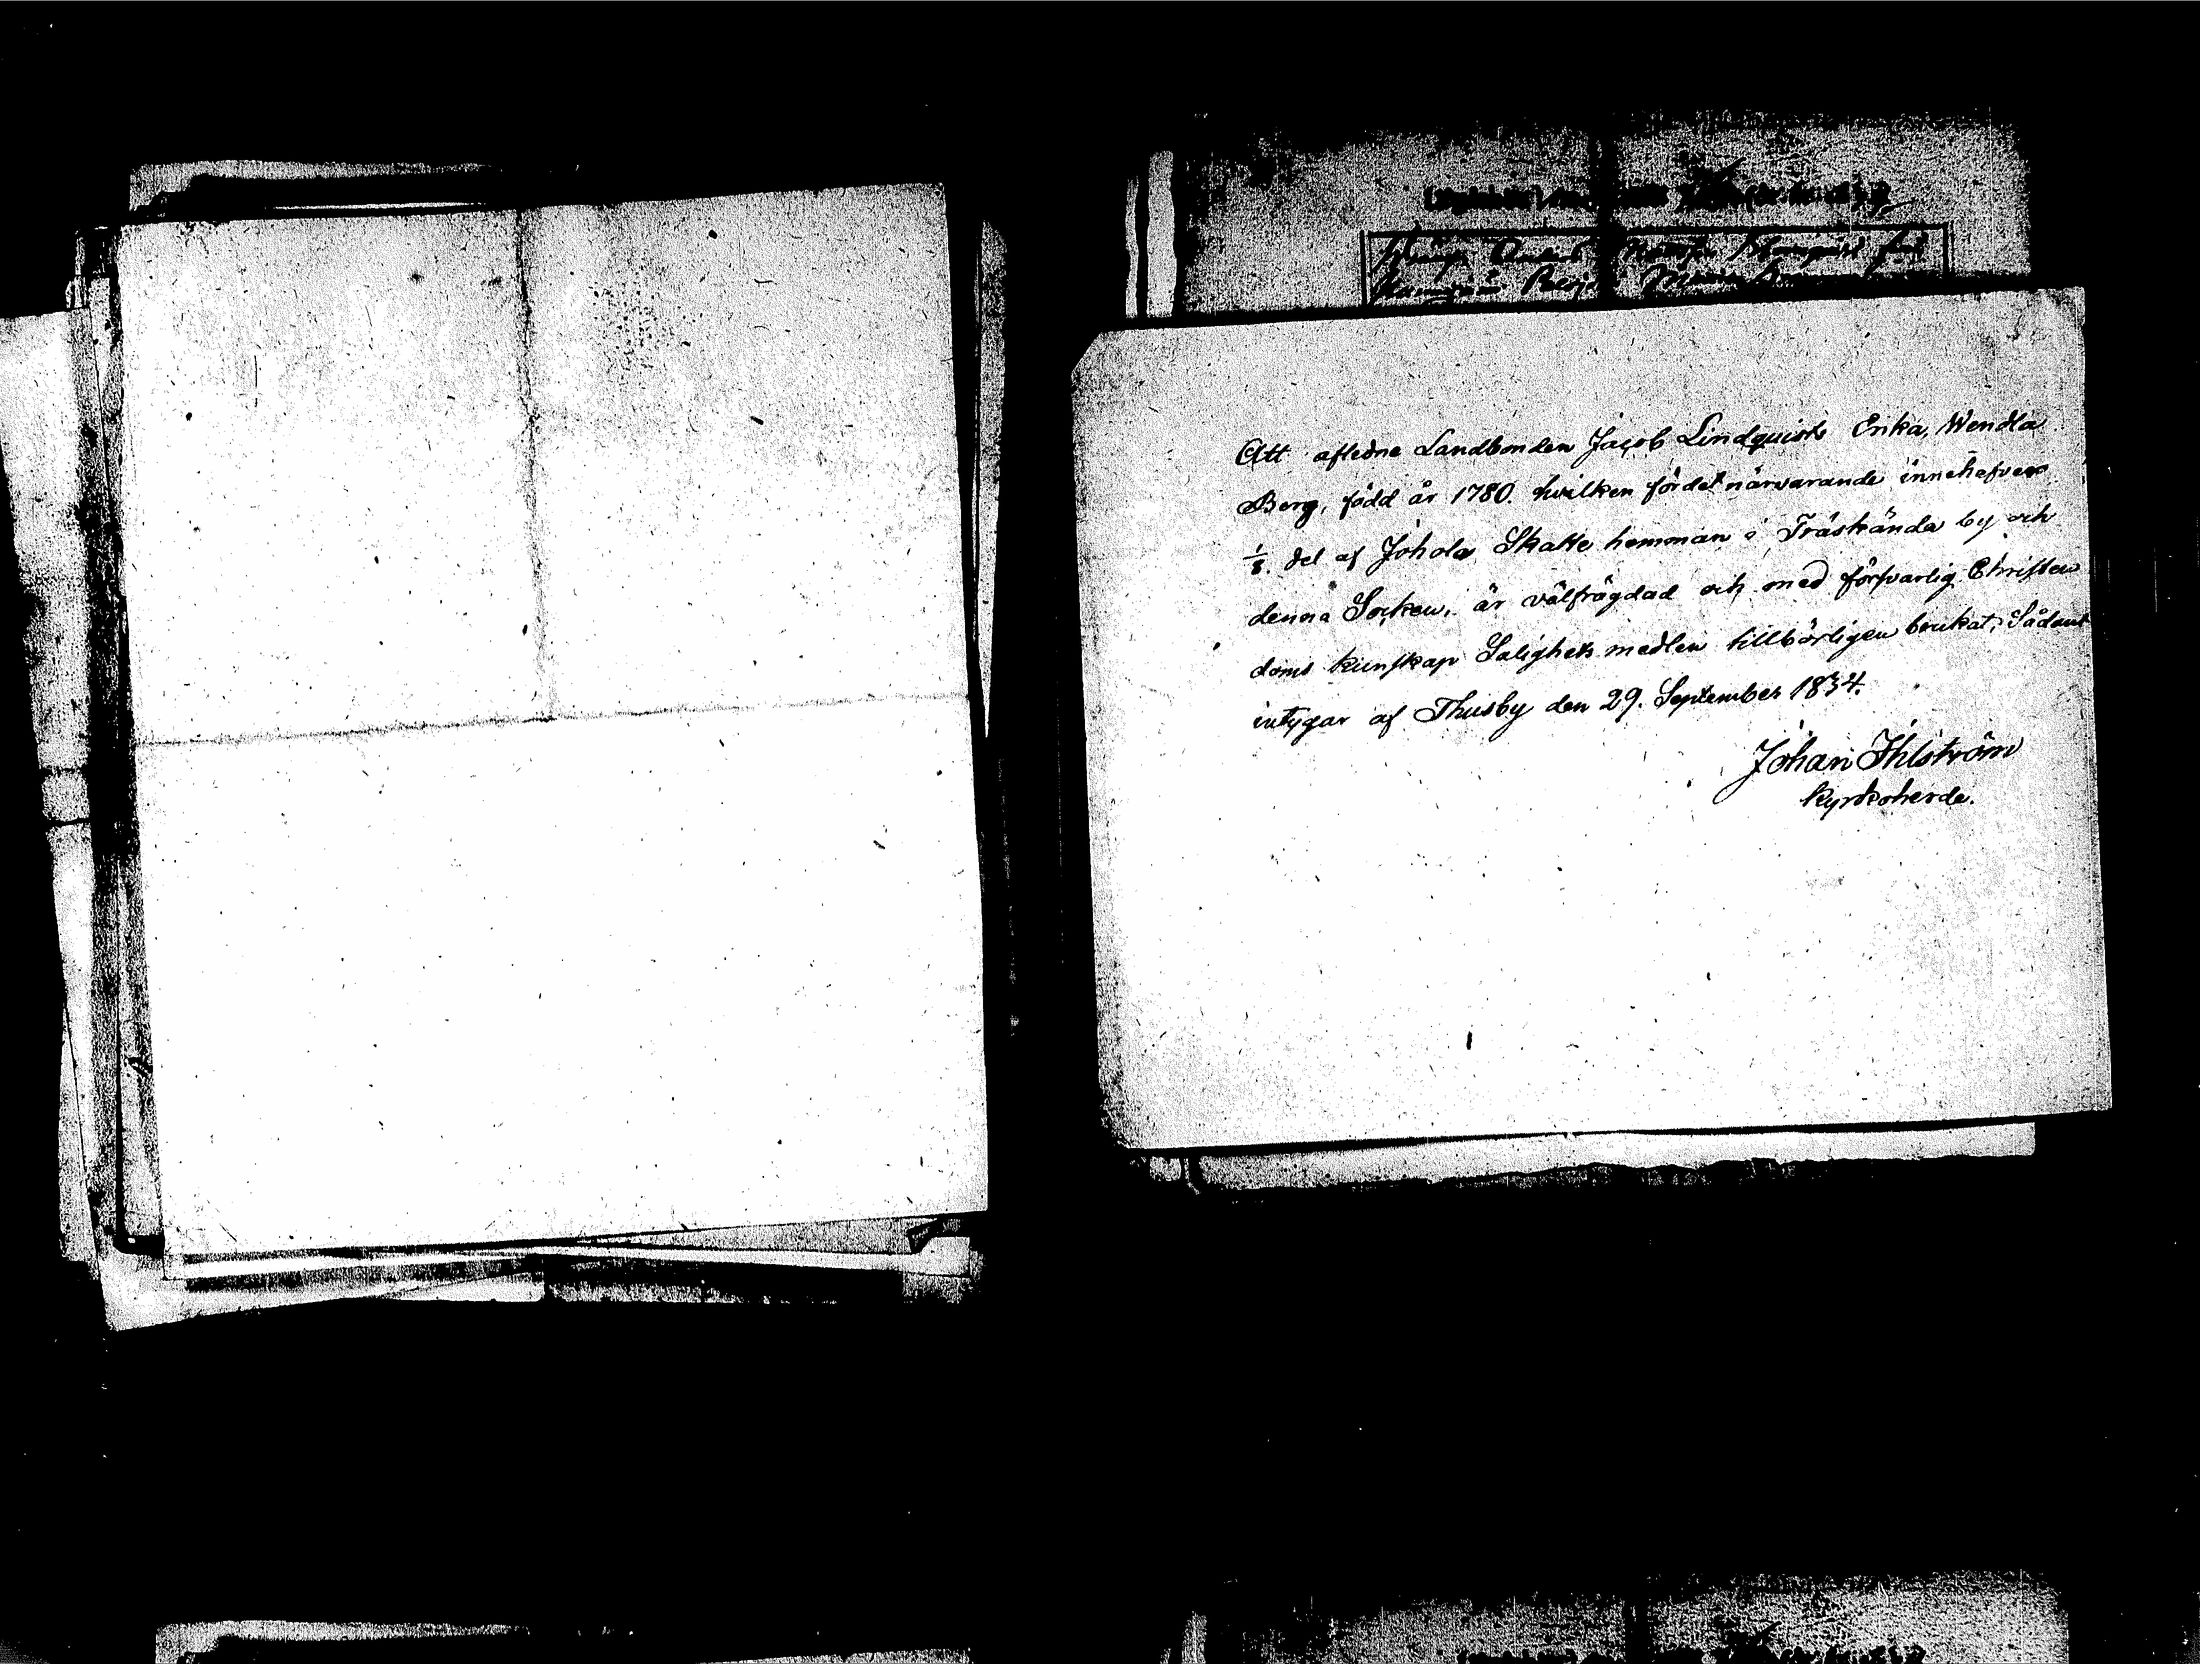 Att afledne Landbonden Jacob Lindquists Enka, Wendla
Berg, född år 1780. hvilken för det närvarande innehafver
1/8. del af Johola Skatte hemman i Träskända by och
denna Socken, är välfrägdad och med försvarlig Christen
doms kunskap Salighets medlen tillbörligen brukat; Sådant
intygar af Thusby den 29. September 1834.
Johan Ihlström
Kyrkoherde.